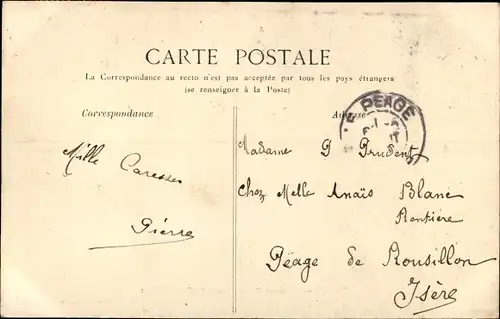 CARTE POSTALE
La Correspondance au recto n'est pas acceptée par tous les pays étrangers
(se renseigner à la Poste)
Correspondance
Adresse
PEAGE
Mille Caresses
Pierre
Madame P Prudent
Chez Melle Anaïs Blanc
Rentière
Péage de Rousillon
Isère